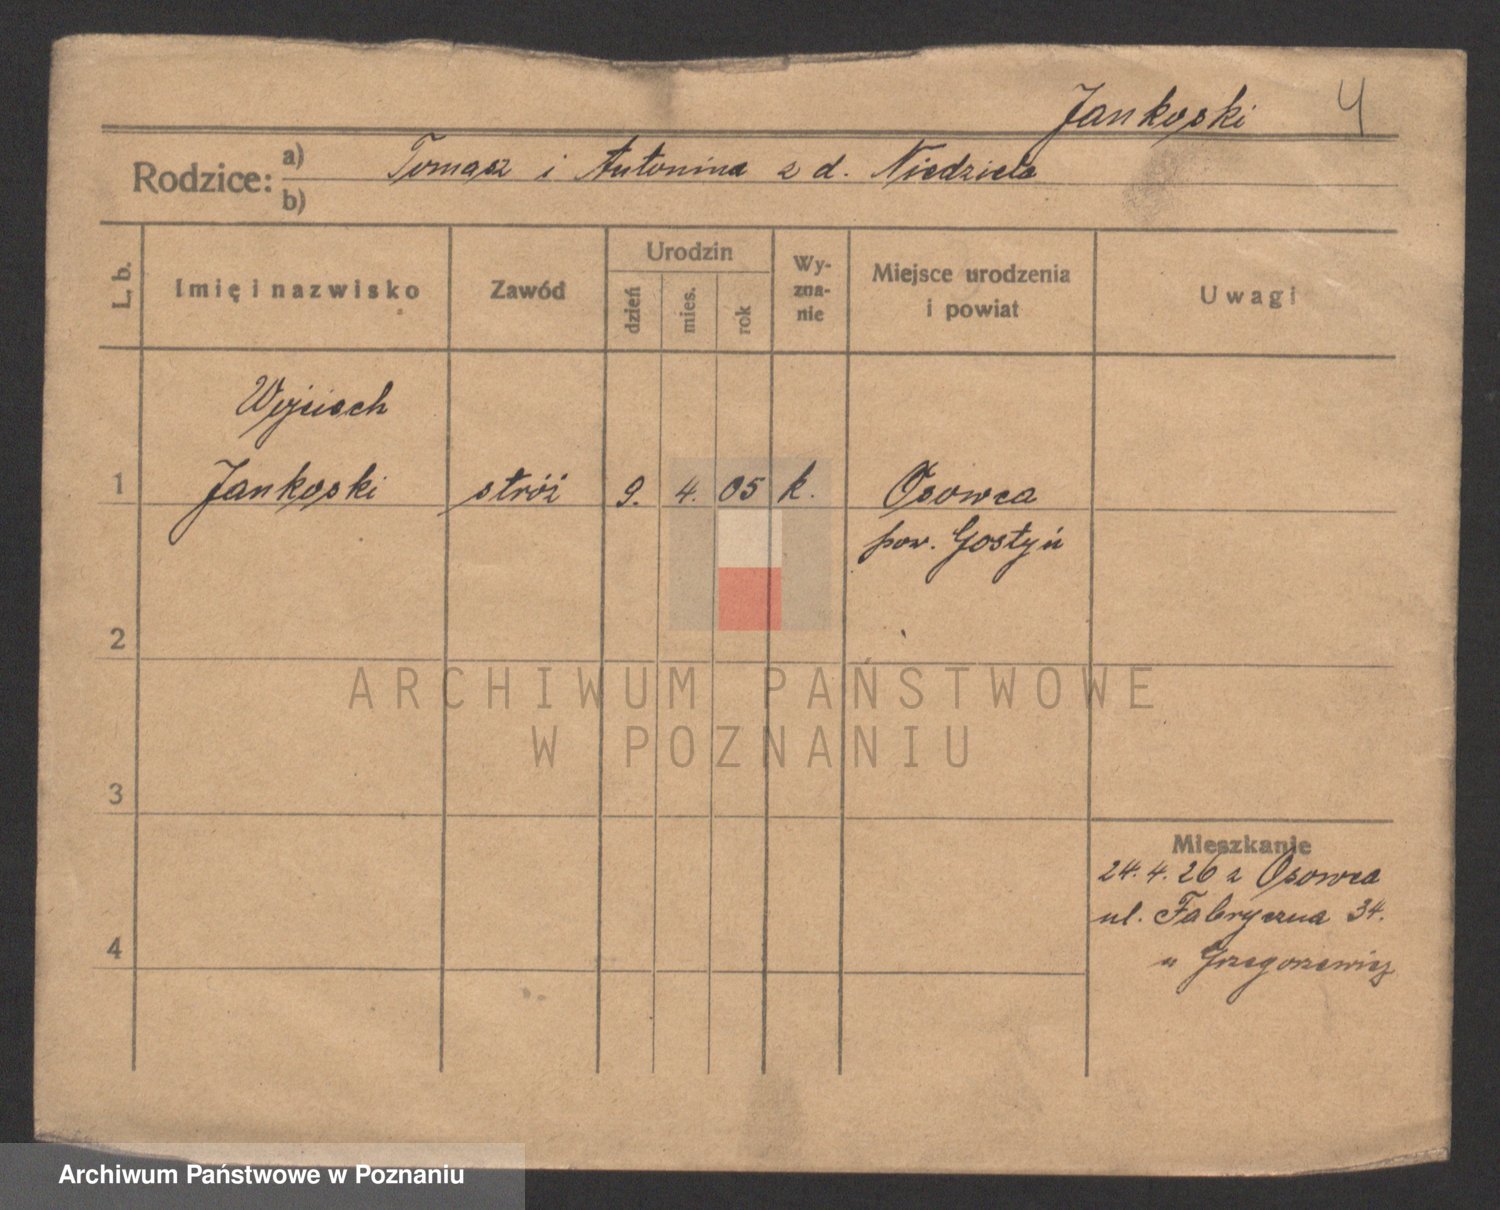 Jankoski 4
Rodzice: a) Tomasz i Antonina z d. Niedziela
b)
L. b. Imię i nazwisko Zawód Urodzin dzień mies. rok Wy-zna-nie Miejsce urodzenia i powiat Uwagi
Wojciech
1 Jankoski stróż 9. 4. 05 k. Osowca
pow. Gostyń
2
ARCHIWUM PAŃSTWOWE
W POZNANIU
3
Mieszkanie
24. 4. 26 z Osowca
ul. Fabryczna 34.
4 u Grzegorzewicz
Archiwum Państwowe w Poznaniu